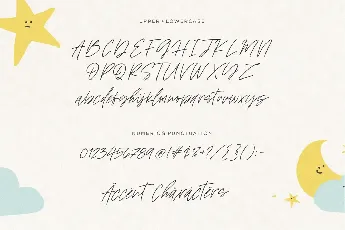 UPPER & LOWERCASE
ABCDEFGHIJKLMN
OPQRSTUVWXYZ
abcdefghijklmnopqrstuvwxyz
NUMERIC & PUNCTUATION
0123456789@!#$%+?/{}():-
Accent Characters